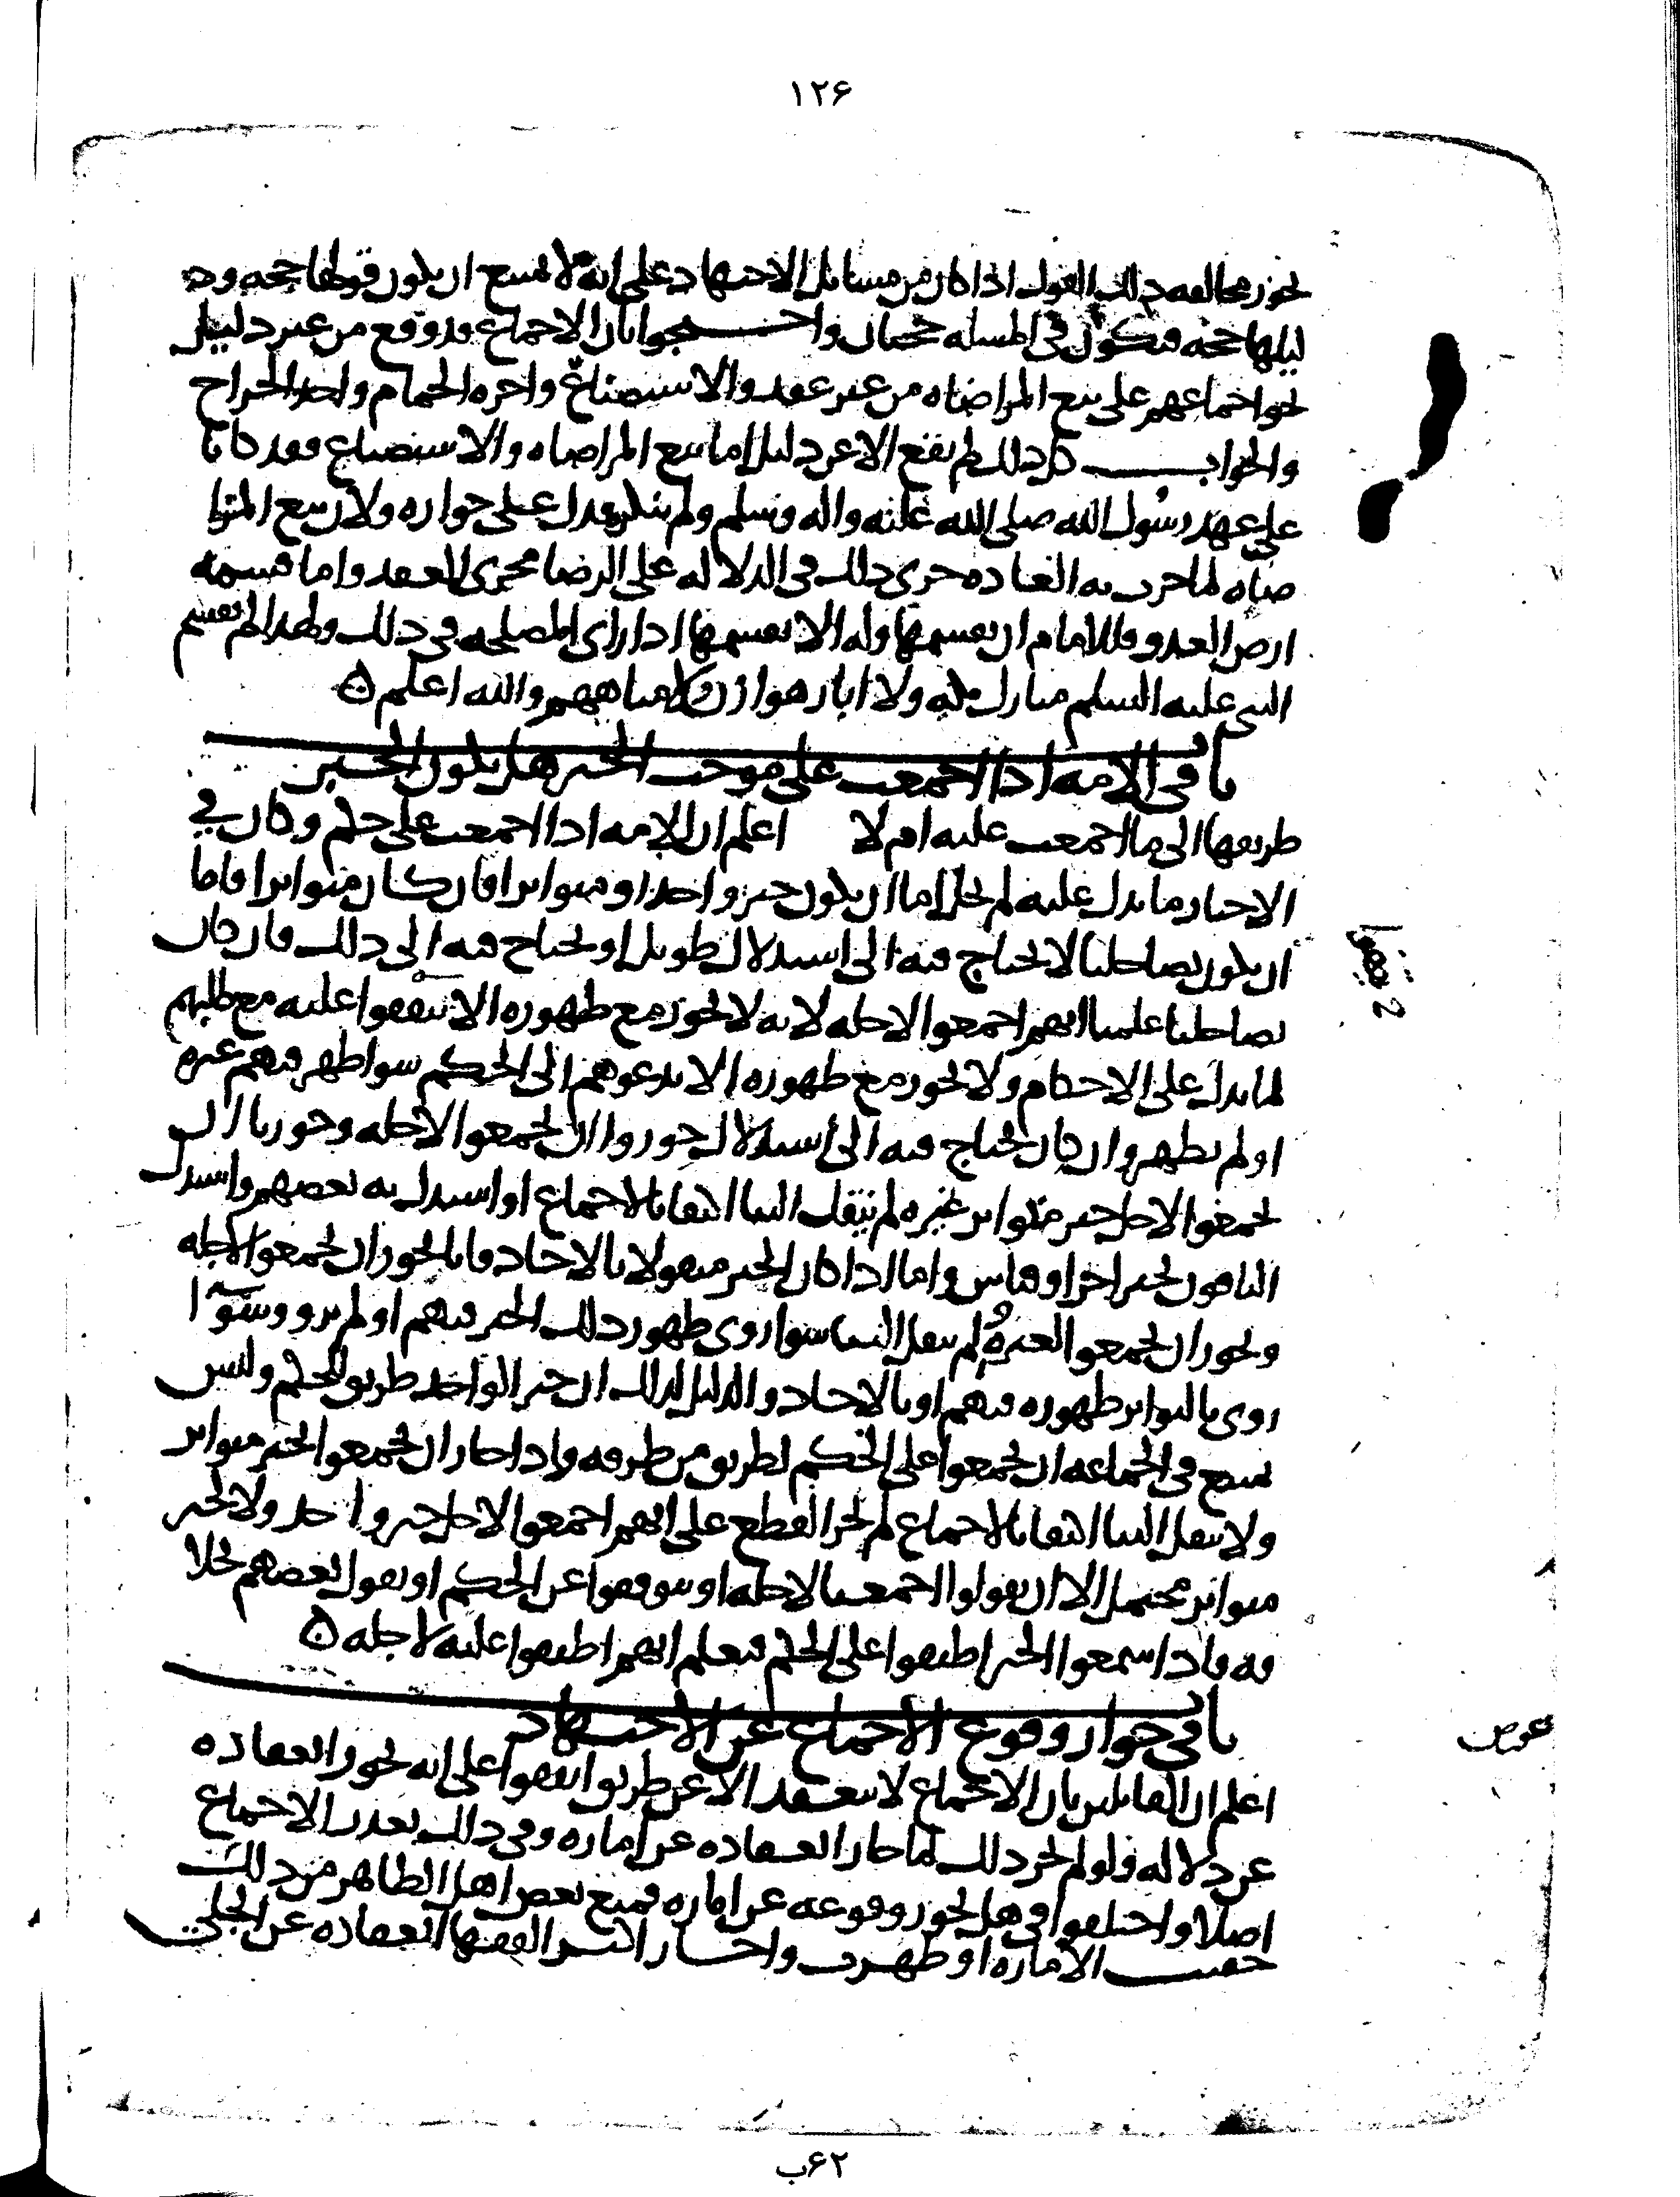 ١٢۶
يجوز مخالفه ذلك القول اذا كان من مسايل الاجتهاد على انه لا يمتنع ان يكون قولها حجه ود
ليلها حجه فيكون في المسله حجتان واحتجوا بان الاجماع قد وقع من غير دليل
نحو اجماعهم على بيع المراضاه من غير عقد والاستصناع واجره الحمام واخذ الخراج
والجواب ان ذلك لم يقع الا عن دليل اما بيع المراضاه والاستصناع فقد كانا
على عهد رسول الله صلى الله عليه واله وسلم ولم ينكر فدل على جوازه ولان بيع المرا
ضاه لما جرت به العاده جرى ذلك في الدلاله على الرضا مجرى العقد واما قسمه
ارض العدو فللامام ان يقسمها وله الا يقسمها اذا راى المصلحه في ذلك ولهذا لم يقسم
النبي عليه السلم منازل مكه ولا ابار هوازن ولا مياههم والله اعلم
باب في الامه اذا اجمعت على موجب الخبر هل يكون الخبر
طريقها الى ما اجمعت عليه ام لا اعلم ان الامه اذا اجمعت على حكم وكان في
الاخبار ما يدل عليه لم يخل اما ان يكون خبر واحد او متواترا فان كان متواترا فاما
ان يكون نصا جليا لا يحتاج فيه الى استدلال طويل او يحتاج فيه الى ذلك فان كان
نصا جليا علمنا انهم اجمعوا لاجله لانه لا يجوز مع ظهوره الا يتفقوا عليه مع طلبهم
لما يدل على الاحكام ولا يجوز مع ظهوره الا يدعوهم الى الحكم سوا ظهر فيهم غيره
او لم يظهر وان كان يحتاج فيه الى استدلال جوزوا ان يجمعوا لاجله وجوزنا ان
يجمعوا لاجل خبر متواتر غيره لم ينقل الينا اكتفا بالاجماع او استدل به بعضهم واستدل
الباقون بخبر اخر او قياس واما اذا كان الخبر منقولا بالاحاد فانا يجوز ان يجمعوا لاجله
ويجوز ان يجمعوا لغيره ولم ينقل الينا سوا روى ظهور ذلك الخبر فيهم او لم يرو وسوا
روى بالتواتر ظهوره فيهم او بالاحاد والدليل لذلك ان خبر الواحد طريق للحكم وليس
يمتنع في الجماعه ان يجمعوا على الحكم لطريق من طرقه واذا جاز ان يجمعوا لخبر متواتر
ولا ينقل الينا اكتفا بالاجماع لم يجز القطع على انهم اجمعوا لاجل خبر واحد ولا لخبر
متواتر محتمل الا ان يقولوا اجمعنا لاجله او يتوقفوا عن الحكم او يقول بعضهم بخلا
فه فاذا سمعوا الخبر اطبقوا على الحكم فيعلم انهم اطبقوا عليه لاجله
باب في جواز وقوع الاجماع عن الاجتهاد
اعلم ان القايلين بان الاجماع لا ينعقد الا عن طريق اتفقوا على انه يجوز انعقاده
عن دلاله فلو لم يجز ذلك لما جاز انعقاده عن اماره وفي ذلك تعذر الاجماع
اصلا واختلفوا في هل يجوز وقوعه عن اماره فمنع بعض اهل الظاهر من ذلك
خفيت الاماره او ظهرت واختار اكثر الفقها انعقاده عن الجلي
۶٢ب